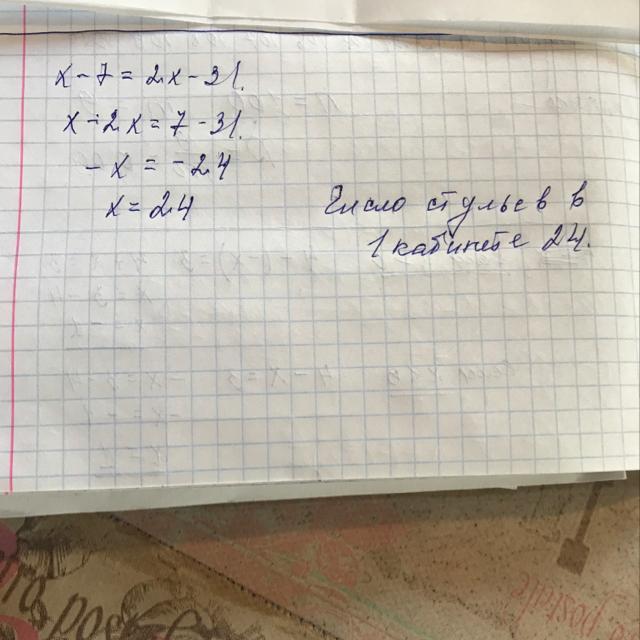 x - 7 = 2x - 31.
x - 2x = 7 - 31.
- x = - 24
x = 24
Число стульев в
1 кабинете 24.